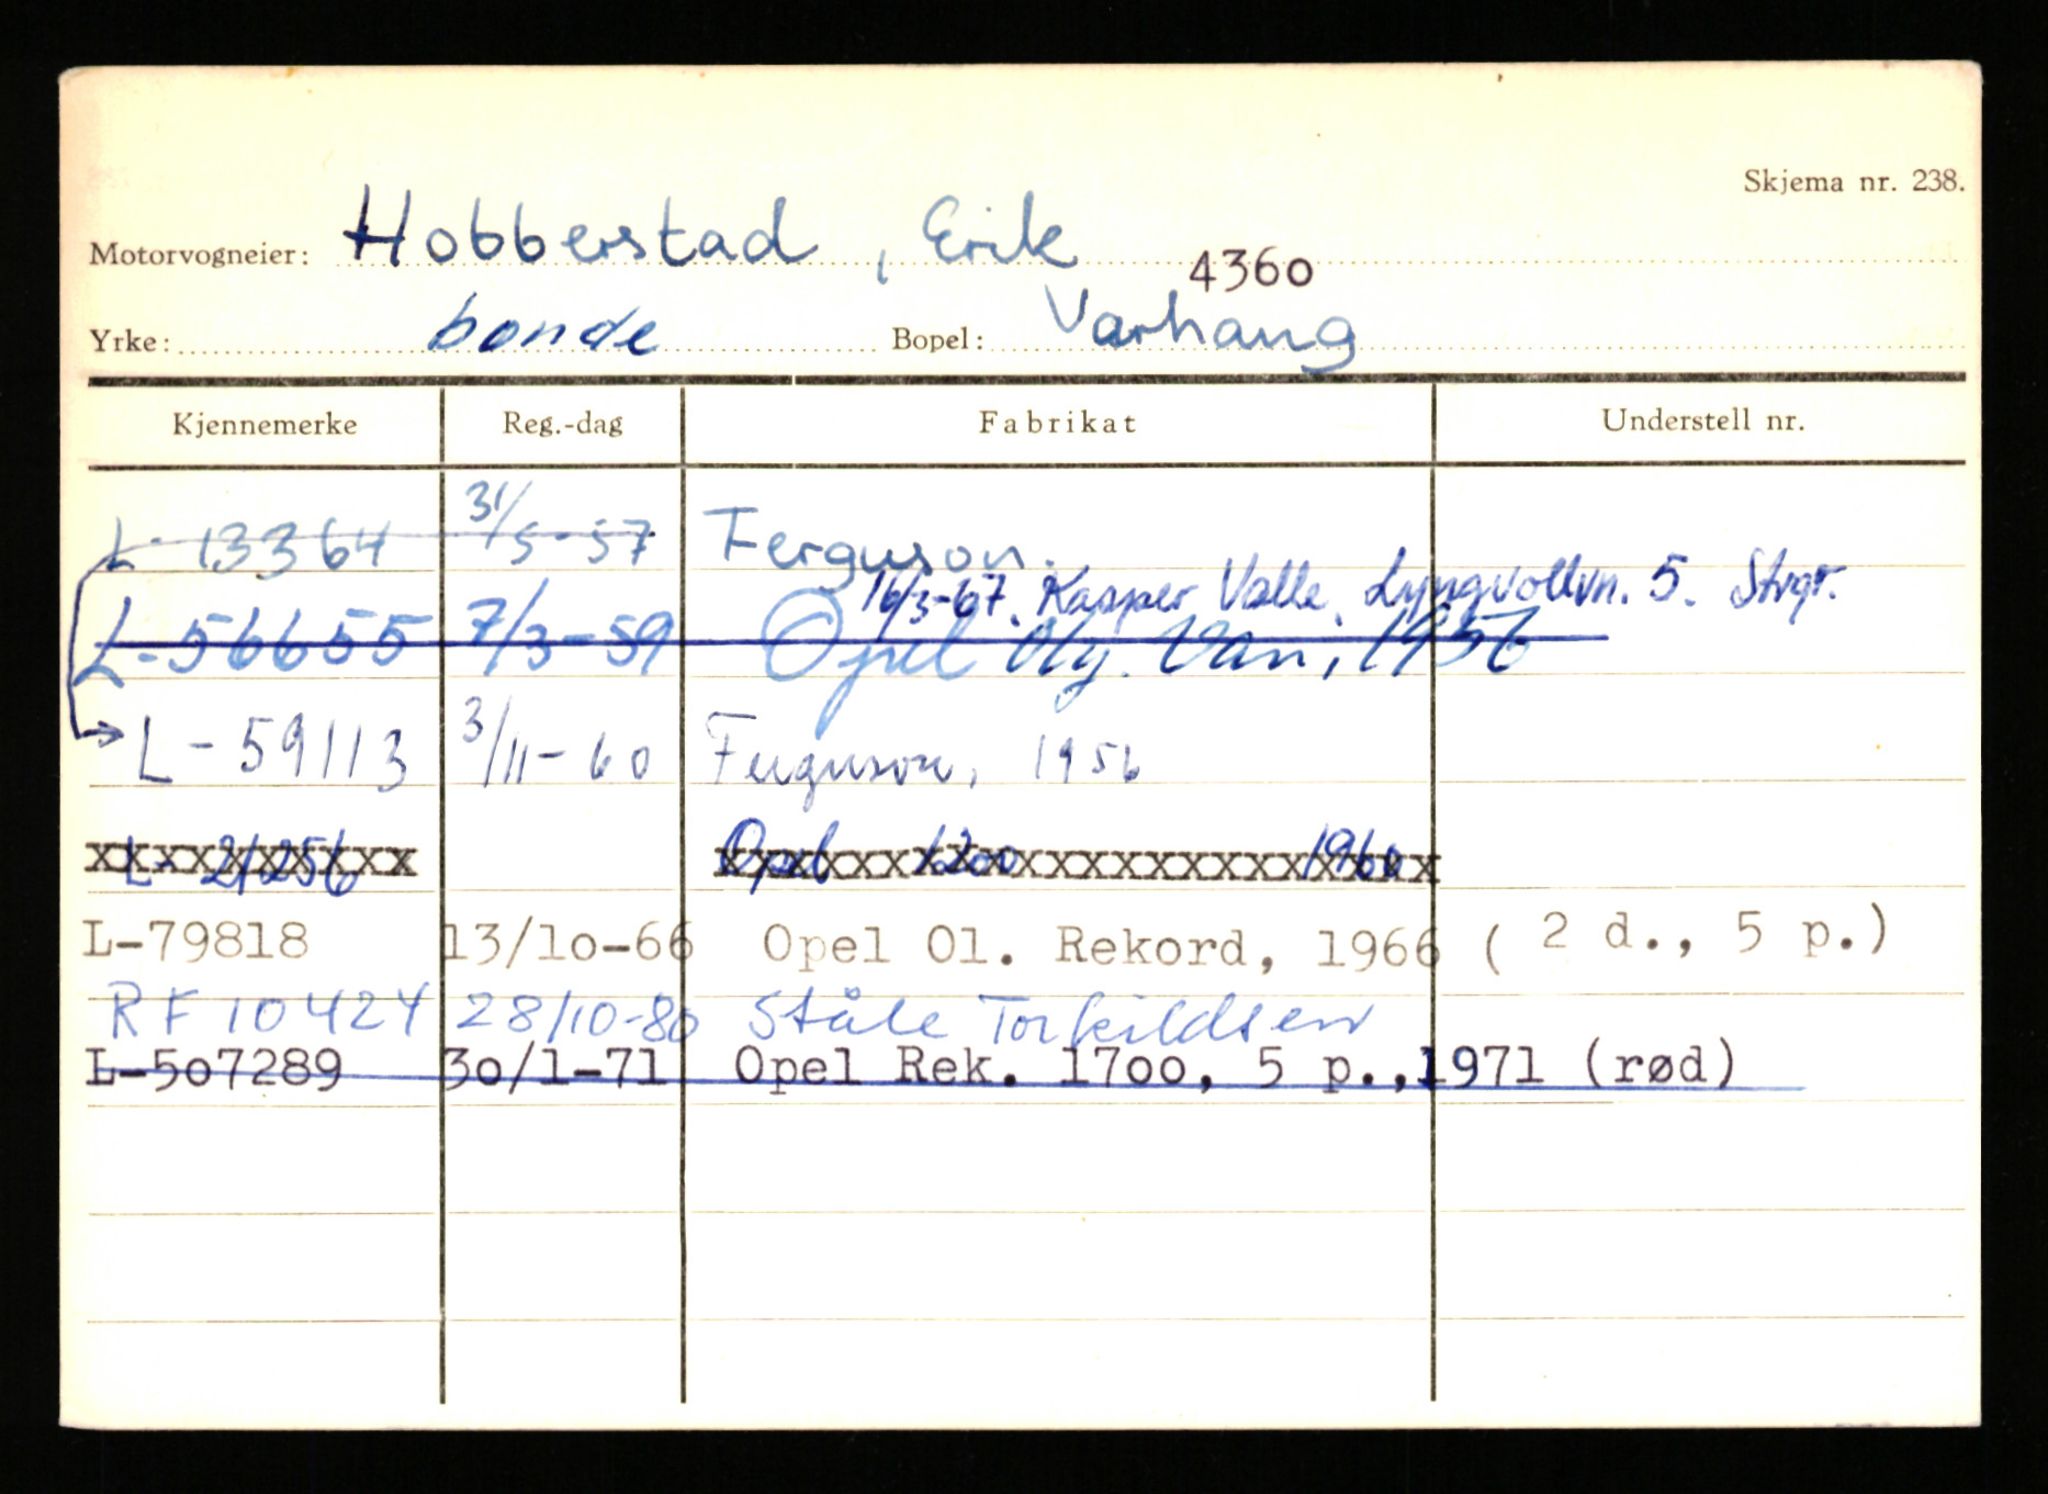 Skjema nr. 238.
Motorvogneier: Hobberstad, Erik
4360
Yrke: bonde Bopel: Varhaug
Kjennemerke Reg.-dag Fabrikat Understell nr.
L-13364 31/5-57 Ferguson.
16/3-67. Kasper Valle, Lyngvollvn. 5. Stvgr.
L-56655 7/3-59 Opel Oly. Van, 1956
L-59113 3/11-60 Ferguson, 1956
L-21256 Opel 1200 1960
L-79818 13/10-66 Opel Ol. Rekord, 1966 ( 2 d., 5 p.)
RF 10424 28/10-80 Ståle Torkildsen
L-507289 30/1-71 Opel Rek. 1700, 5 p.,1971 (rød)